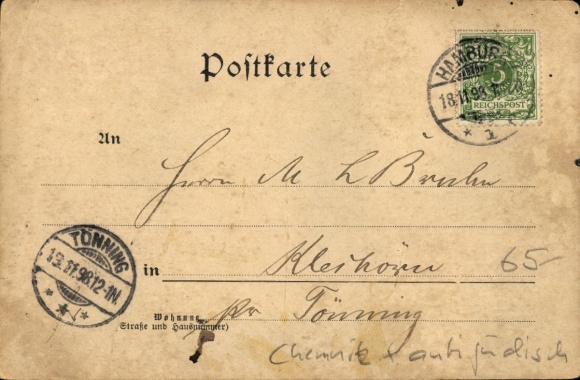 Postkarte
HAMBUR
18.11.98
5
REICHSPOST
* 1 *
An
Herrn M L
TÖNNING
19.11.98.12-1N.
in
65-
Wohnung
pr Tönning
(Straße und Hausnummer)
Chemnitz + antijüdisch